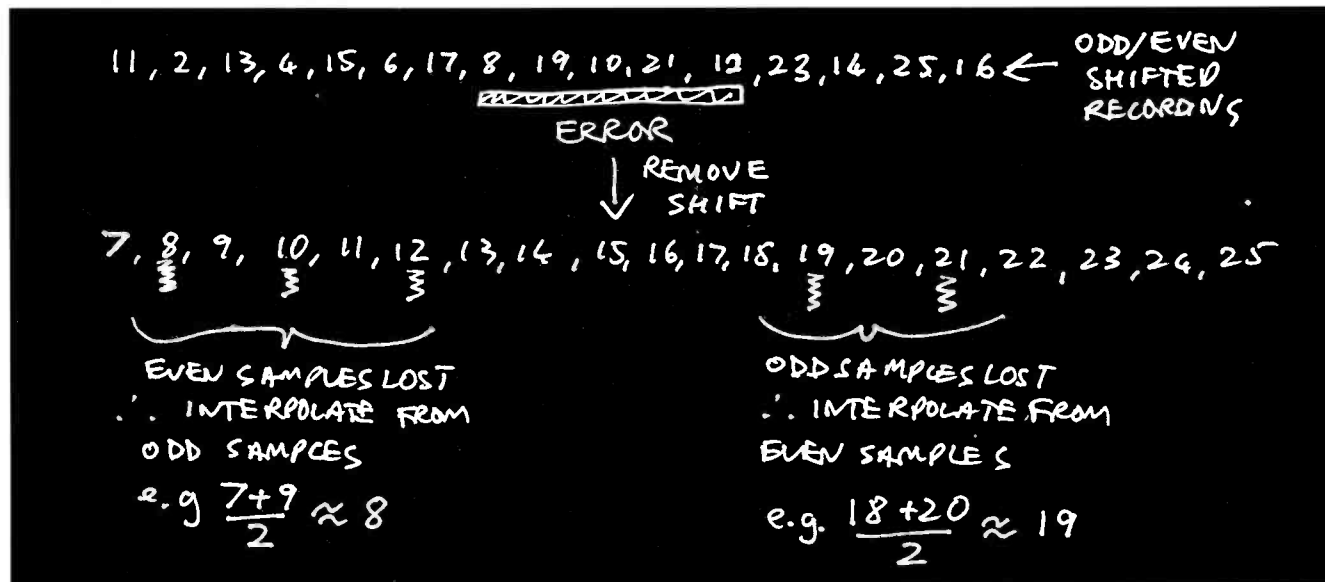 11, 2, 13, 4, 15, 6, 17, 8, 19, 10, 21, 12, 23, 14, 25, 16 ←
ODD/EVEN
SHIFTED
RECORDING
ERROR
REMOVE
SHIFT
7, 8, 9, 10, 11, 12, 13, 14, 15, 16, 17, 18, 19, 20, 21, 22, 23, 24, 25
EVEN SAMPLES LOST
∴ INTERPOLATE FROM
ODD SAMPLES
e.g 7+9/2 ≈ 8
ODD SAMPLES LOST
∴ INTERPOLATE FROM
EVEN SAMPLES
e.g. 18+20/2 ≈ 19